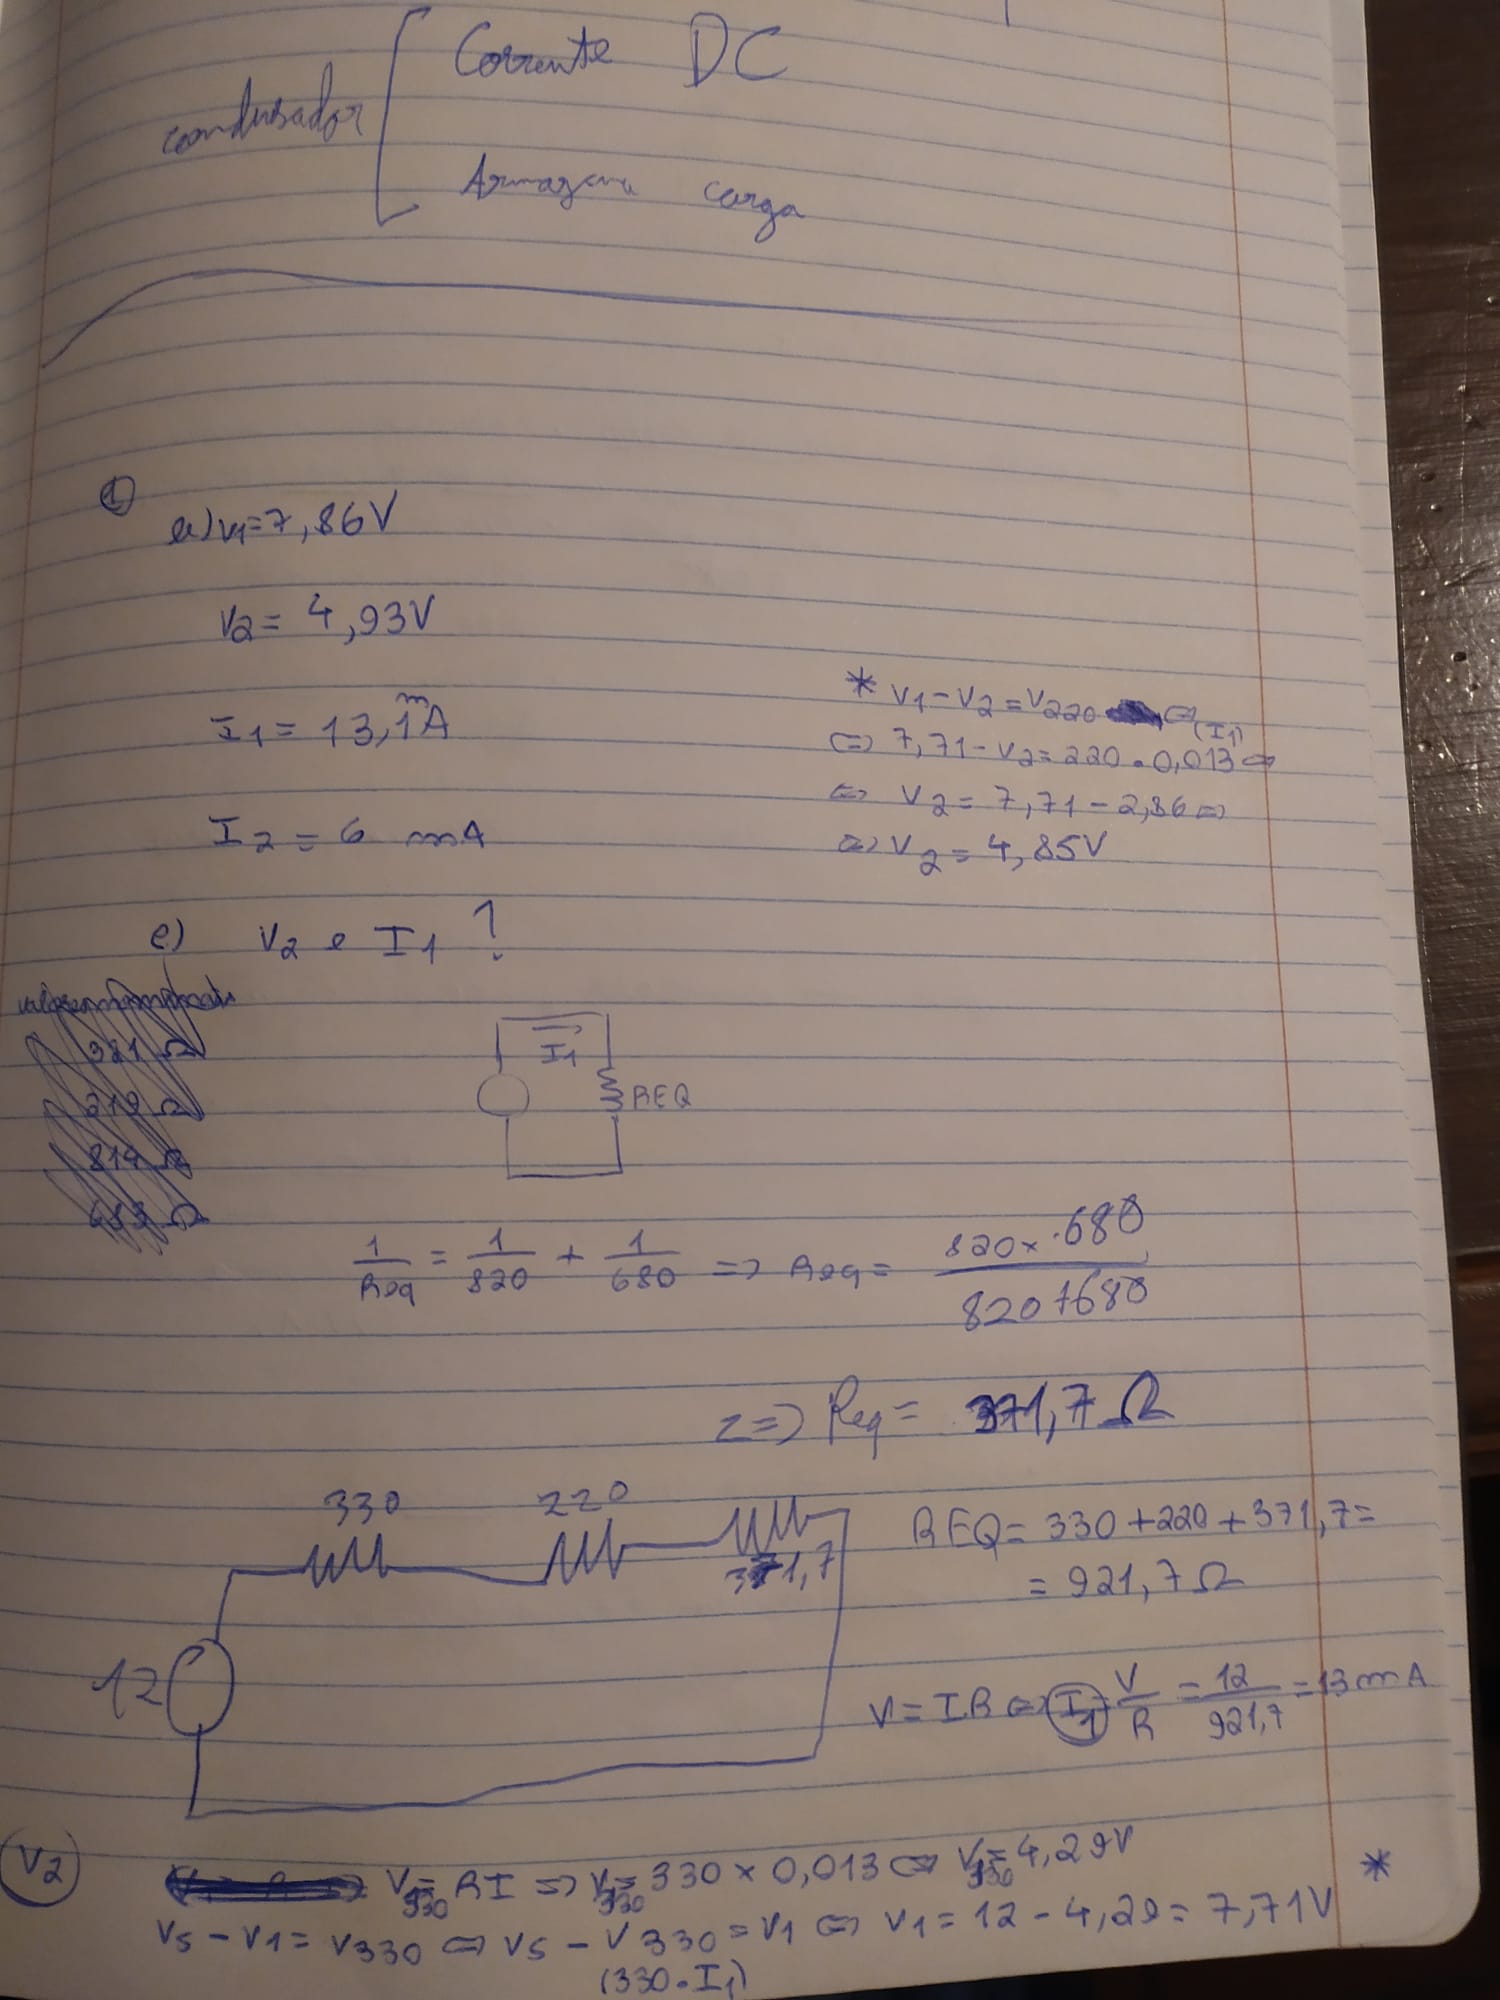 Corrente DC
condensador
Armazena carga
①
a) V1=7,86V
V2= 4,93V
I1= 13,1mA
I2= 6 mA
* V1-V2=V220 ⇔
(I1)
⇔ 7,71-V2=220.0,013⇔
⇔ V2=7,71-2,86⇔
⇔ V2=4,85V
e) V2 e I1 ?
I1
REQ
1/Req = 1/820 + 1/680 => Req= 820x.680/820+680
=> Req= 371,7Ω
330 220 371,7
REQ= 330+220+371,7=
= 921,7Ω
12
V=IR⇔ I1 = V/R = 12/921,7 = 13mA
V2
V330=RI => V330= 330 x 0,013 ⇔ V330=4,29V
*
Vs-V1= V330 ⇔ Vs-V330=V1 ⇔ V1= 12-4,29= 7,71V
(330.I1)